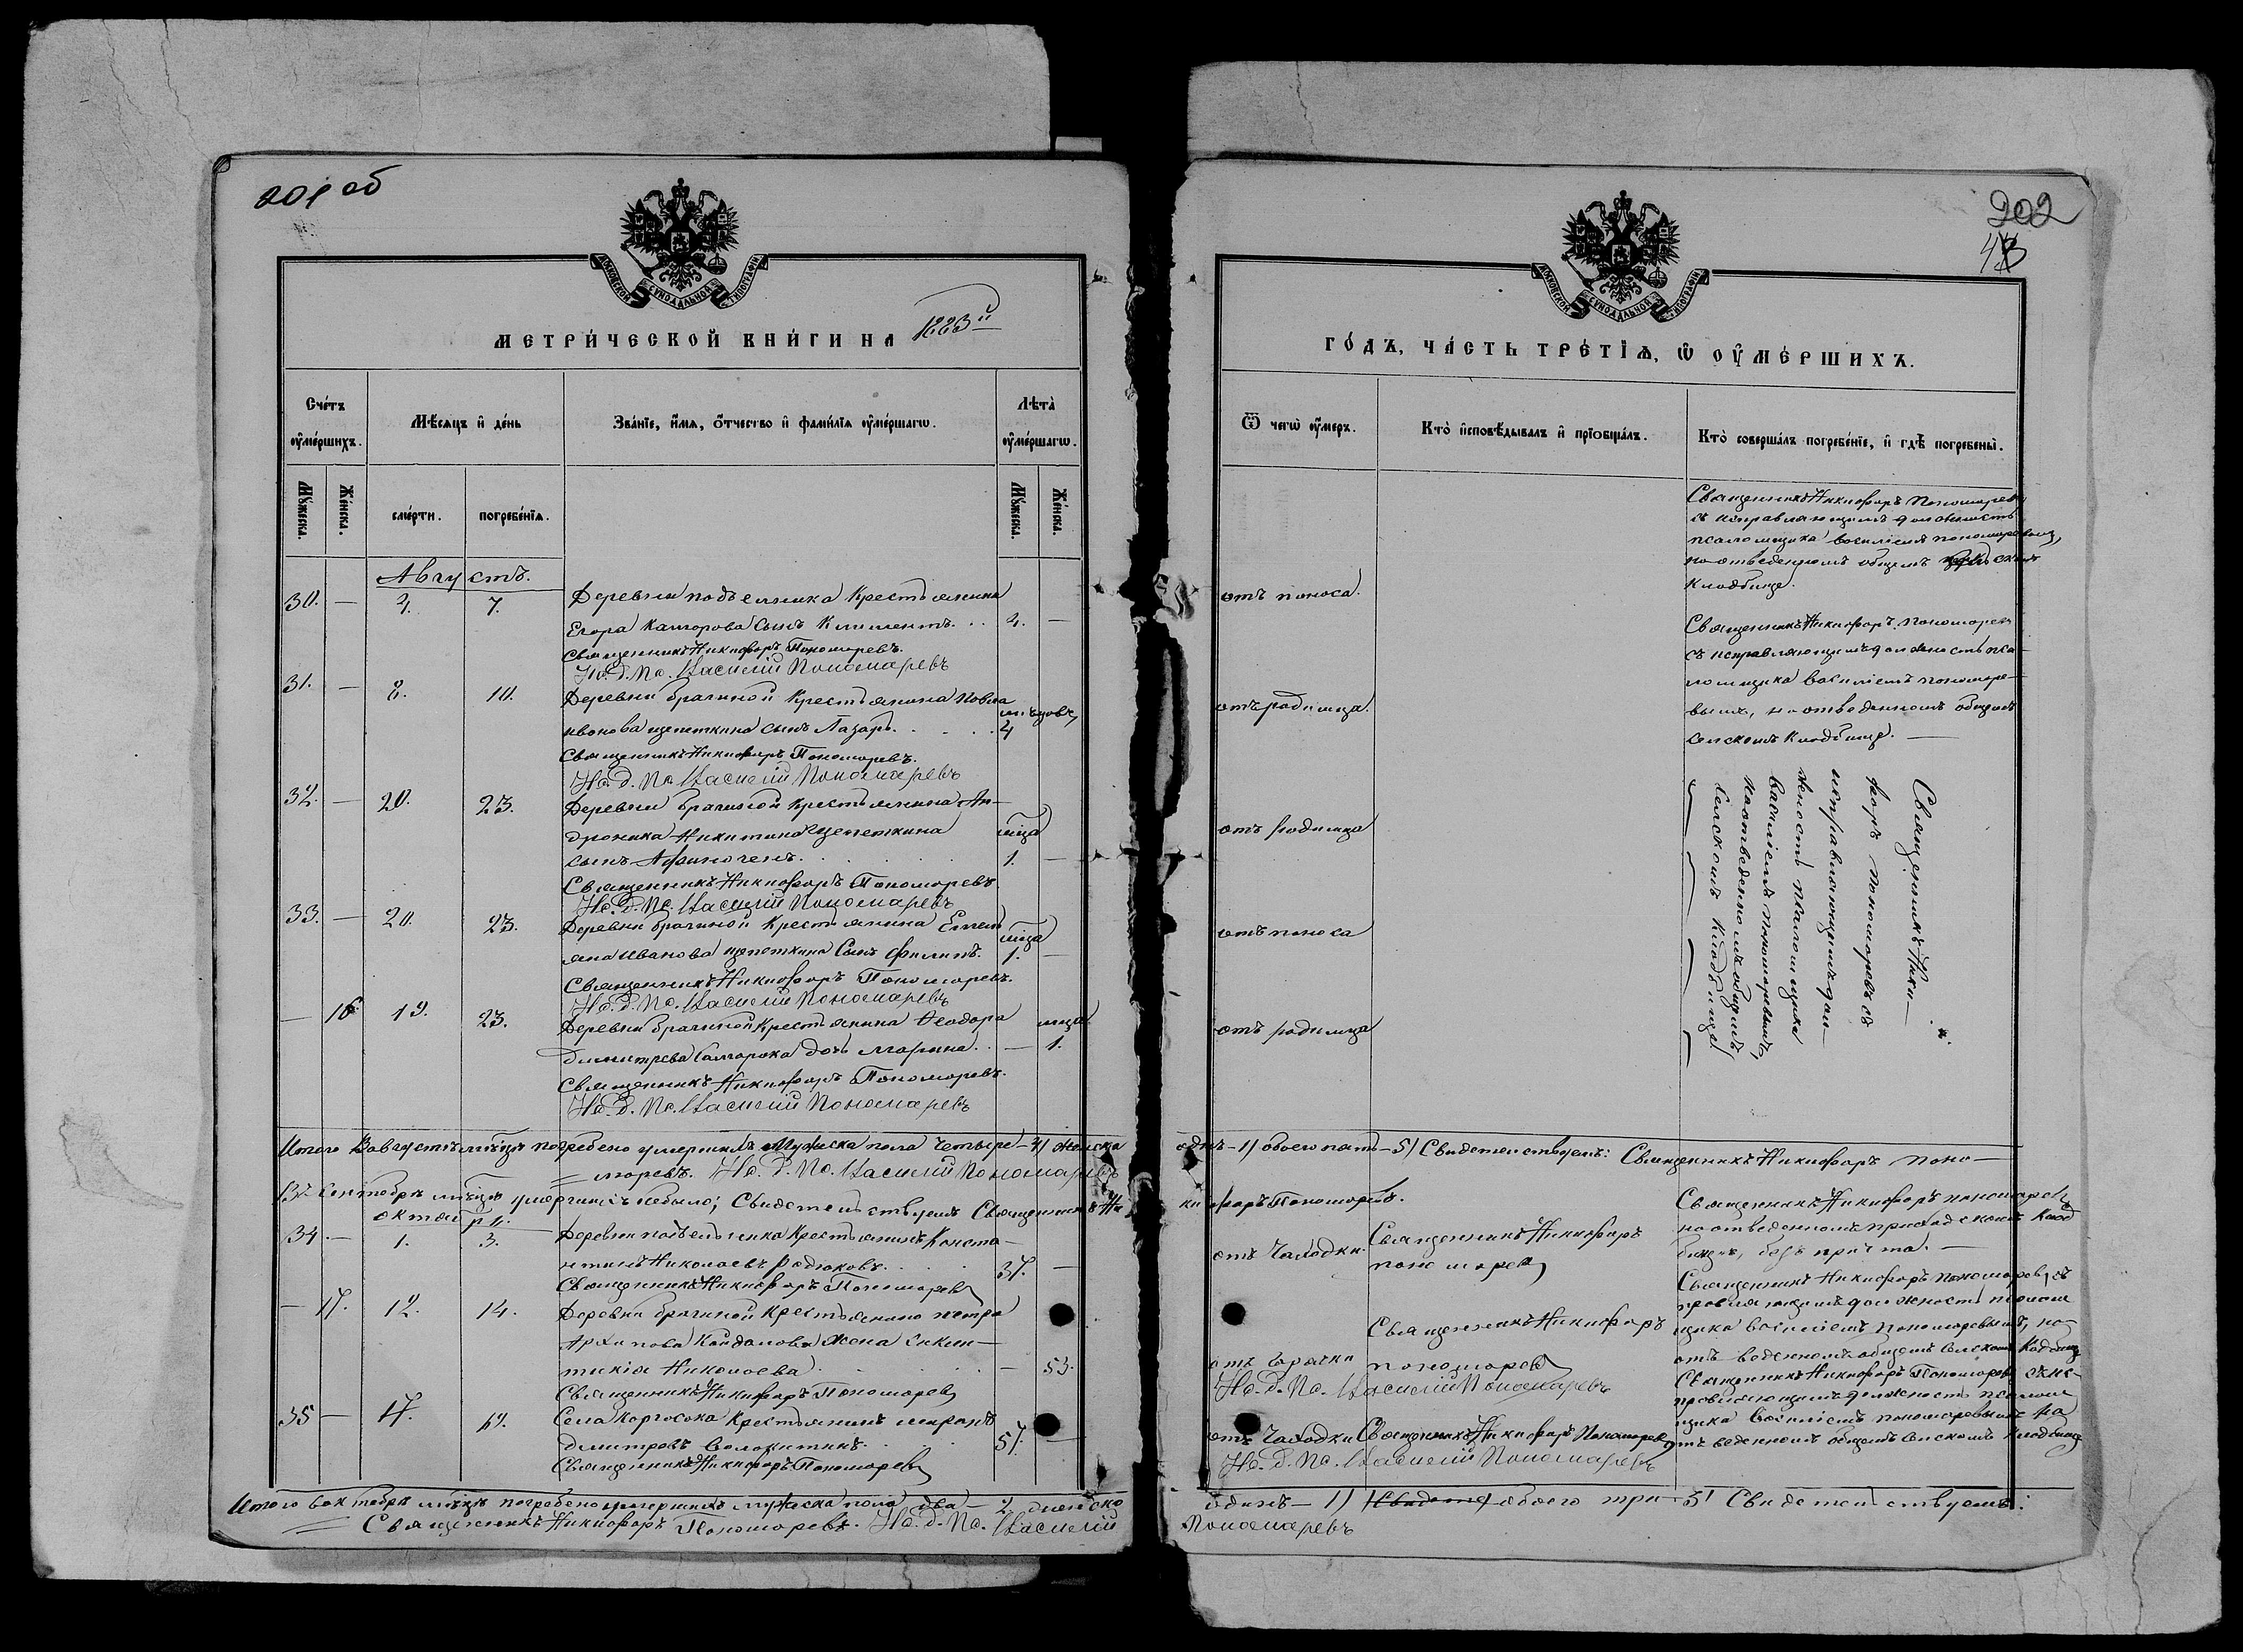 201 об
МОСКОВСКОЙ СѴНОДАЛЬНОЙ ТѴПОГРАФІИ
МЕТРИ́ЧЕСКОЙ КНИ́ГИ НА 1883й
Сче́тъ ᲂу҆ме́ршихъ.
Мѣ́сѧцъ и҆ де́нь
Зва́нїе, и҆́мѧ, ѻ҆́тчество и҆ фами́лїѧ ᲂу҆ме́ршагѡ.
Лѣта̀ ᲂу҆ме́ршагѡ.
Мꙋ́жеска.
Же́нска.
сме́рти.
погребе́нїѧ.
Мꙋ́жеска.
Же́нска.
Августъ.
30. — 4. 7. Деревни подъельника Крестьянина
Егора Каморова Сынъ Климентъ. . . 4. —
Священникъ Никифоръ Пономоревъ.
И. д. Пс. Василій Пономаревъ
31. — 8. 10. Деревни брагиной Крестьянина Повла
ивонова щепеткина сынъ Лазарь. . . . . 4
Священникъ Никифоръ Пономоревъ.
И. д. Пс. Василій Пономаревъ
32. — 20. 23. Деревни брагиной Крестьянина Ан-
дроника Никитина щепеткина мѣца
сынъ Афиногенъ. . . . . 1. —
Священникъ Никифоръ Пономоревъ
И. д. Пс. Василій Пономаревъ
33. — 20. 23. Деревни брагиной Крестьянина Емель
яна Иванова щепеткина Сынъ Филипъ. мѣца 1. —
Священникъ Никифоръ Пономоревъ.
И. д. Пс. Василій Пономаревъ
— 16. 19. 23. Деревни брагиной Крестьянина Ѳеодора мѣца
Димитрева дочь Марина. . — 1.
Священникъ Никифоръ Пономоревъ.
И. д. Пс. Василій Пономаревъ
Итого Въ августѣ мѣцѣ погребено умершихъ Мужеска пола Четыре — 4) женска
моревъ. И. д. Пс. Василій Пономаревъ
Въ Сентябрѣ мѣцѣ умершихъ небыло; Свидетельствуемъ Священникъ Ни
октябрь.
34. — 1. 3. Деревни подъельника Крестьянинъ Конста-
нтинъ Николаевъ Родюковъ. . . . 37. —
Священникъ Никифоръ Пономорев
— 17. 12. 14. Деревни брагиной Крестьянина петра
Архипова Кайдалова жена
Николаева. . . . . — 53.
Священникъ Никифоръ Пономорев
35 — 17. 19. Села Каргосока Крестьянинъ
Дмитревъ Волокитинъ. . . . 57. —
Священникъ Никифоръ Пономорев
Итого Вактебрѣ мѣцѣ погребено умершихъ мужеска пола два — 2, женско
Священникъ Никифоръ Пономоревъ. И. д. Пс. Василій
202
МОСКОВСКОЙ СѴНОДАЛЬНОЙ ТѴПОГРАФІИ
ГО́ДЪ, ЧА́СТЬ ТРЕ́ТЇѦ, Ѡ҆ ОУ҆МЕ́РШИХЪ.
Ѿ чегѡ̀ ᲂу҆́меръ.
Кто̀ и҆сповѣ́дывалъ и҆ прїѡбща́лъ.
Кто̀ соверша́лъ погребе́нїе, и҆ гдѣ̀ погребены̀.
Священникъ Никифоръ Пономорев
съ исправляющимъ должность
псаломщика василіемъ пономоревым,
на отведенномъ общемъ
Кладбище.
отъ поноса.
Священникъ Никифоръ Пономорев
съ исправляющимъ должность пса-
ломщика василіемъ пономоре-
вымъ, на отведенномъ общемъ
сельскомъ Кладбище. —
отъ родимца.
отъ родимца
отъ поноса
отъ родимца
Священникъ Ники-
форъ пономоревъ съ
исправляющимъ дол-
жность псаломщика
василіемъ пономоревымъ,
на отведенномъ общемъ
сельскомъ Кладбище.
одна — 1) обоего пять — 5) Свидетельствуемъ: Священникъ Никифоръ Поно-
кифоръ Пономоревъ.
отъ Чаходки. Священникъ Никифоръ
пономорев
Священникъ Никифоръ пономорев
на отведенномъ приходскомъ Клад
бище, безъ причта. —
отъ горячки Священникъ Никифоръ
пономорев
И. д. Пс. Василій Пономаревъ
Священникъ Никифоръ Пономорев, съ
правляющимъ должность псалом
щика василіемъ Пономоревымъ, на
отъведенномъ общемъ сельскомъ Кладбище
отъ Чаходки Священникъ Никифоръ Пономорев
И. д. Пс. Василій Пономаревъ
Священникъ Никифоръ Пономорев съ ис-
правляющимъ должность псалом
щика Василіемъ пономоревымъ на
отъведенномъ общемъ сельскомъ Кладбище
одинъ — 1) обоего три — 3) Свидетельствуемъ:
Пономаревъ